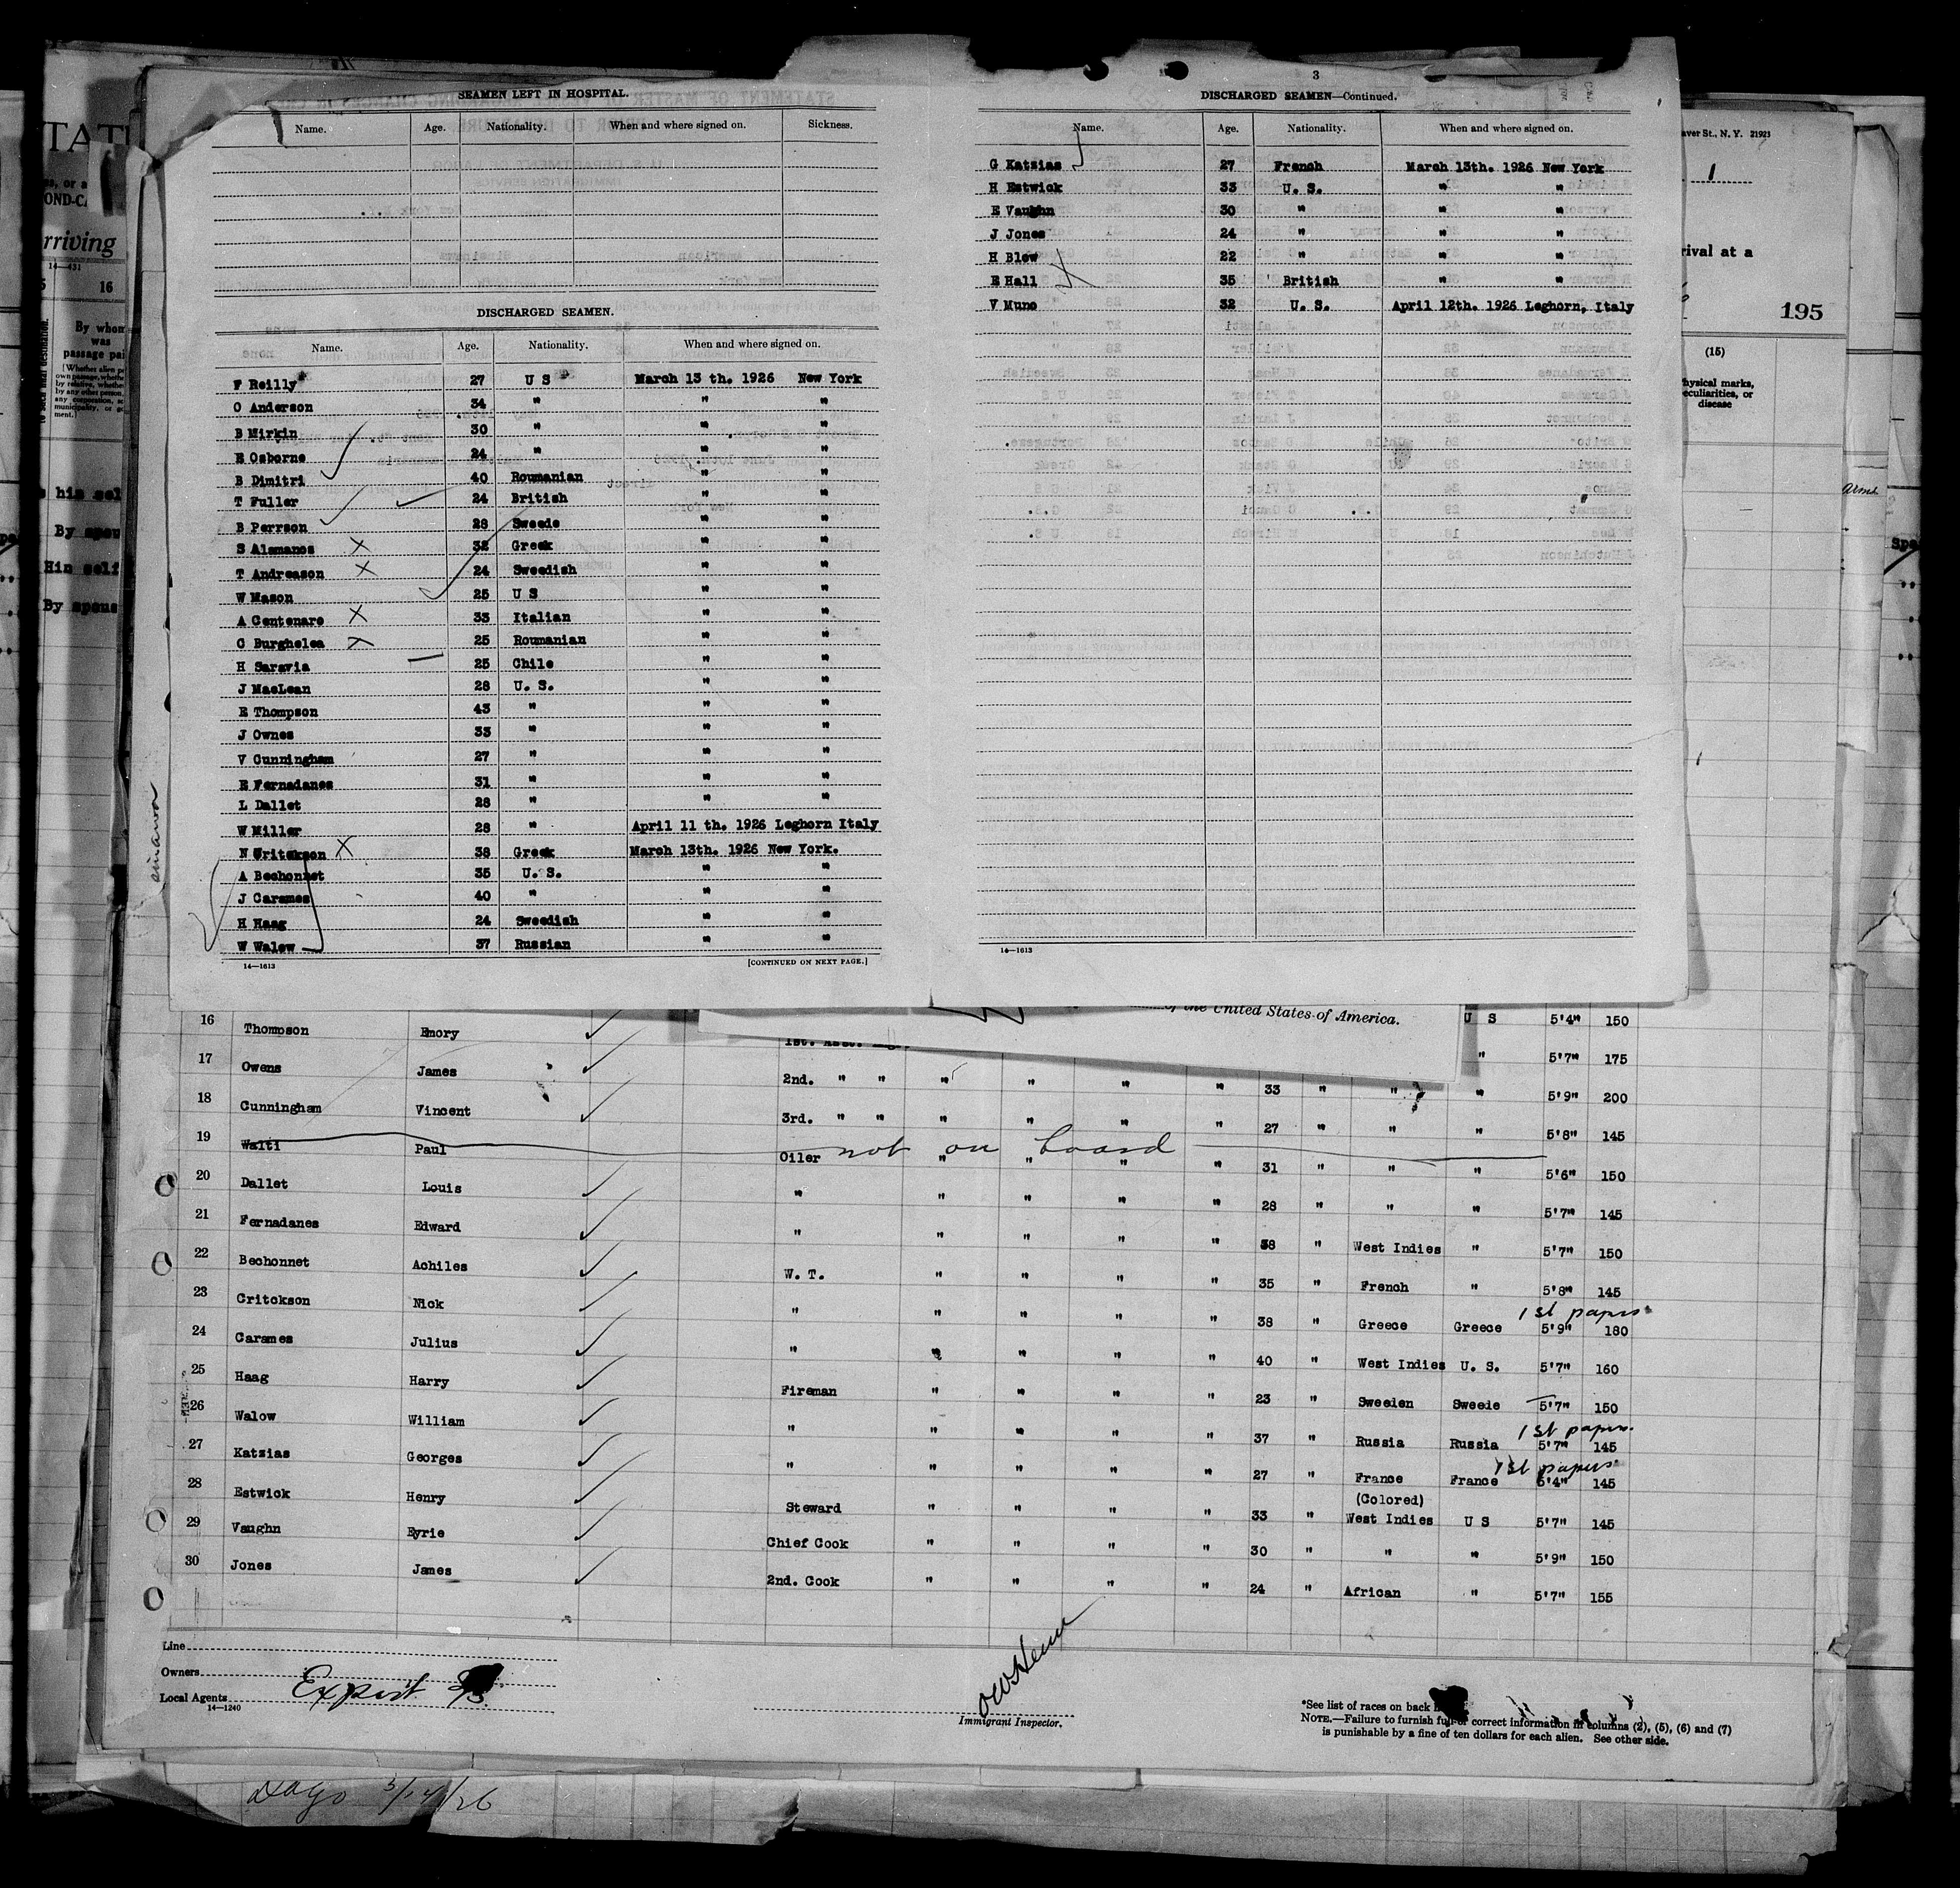 SEAMEN LEFT IN HOSPITAL.
Name. Age. Nationality. When and where signed on. Sickness.
DISCHARGED SEAMEN.
Name. Age. Nationality. When and where signed on.
F Reilly 27 U S March 13 th. 1926 New York
O Anderson 34 " " "
B Mirkin 30 " " "
E Osborne 24 " " "
B Dimitri 40 Roumanian " "
T Fuller 24 British " "
B Perrson 28 Swede " "
S Alemanos X 32 Greek " "
T Andreason X 24 Swedish " "
W Mason 25 U S " "
A Centenaro X 33 Italian " "
C Burghelea X 25 Roumanian " "
H Saravia 25 Chile " "
J MacLean 28 U. S. " "
E Thompson 43 " " "
J Ownes 33 " " "
V Cunningham 27 " " "
E Fernadanes 31 " " "
L Dallet 28 " " "
W Miller 28 " April 11 th. 1926 Leghorn Italy
N Gritckson X 38 Greek March 13th. 1926 New York.
A Bechonnet 35 U. S. " "
J Carames 40 " " "
H Haag 24 Swedish " "
W Walow 37 Russian " "
14—1613 [CONTINUED ON NEXT PAGE.]
3
DISCHARGED SEAMEN—Continued.
Name. Age. Nationality. When and where signed on.
G Katzias 27 French March 13th. 1926 New York
H Estwick 33 U. S. " "
E Vaughn 30 " " "
J Jones 24 " " "
H Blow 22 " " "
E Hall X 35 British " "
V Muno 32 U. S. April 12th. 1926 Leghorn, Italy
14—1613
aver St., N. Y. 21923
1
rival at a
195
(15)
hysical marks,
eculiarities, or
disease
TAT
OND-CA
rriving
14—431
16
By whom
was
passage pai
his sel
By spou
Him self
By spous
of the United States of America.
16 Thompson Emory 1st. Asst. U S 5'4" 150
17 Owens James 2nd. " " " " " " 33 " " " 5'7" 175
18 Cunningham Vincent 3rd. " " " " " " 27 " " " 5'9" 200
19 Walti Paul not on board Oiler " " " " 31 " " " 5'8" 145
20 Dallet Louis " " " " " 28 " " " 5'6" 150
21 Fernadanes Edward " " " " " 38 " West Indies " 5'7" 145
22 Bechonnet Achiles W. T. " " " " 35 " French " 5'7" 150
23 Critckson Nick " " " " " 38 " Greece Greece 1st papers 5'8" 145
24 Carames Julius " " " " " 40 " West Indies U. S. 5'9" 180
25 Haag Harry Fireman " " " " 23 " Sweden Swede 5'7" 160
26 Walow William " " " " " 37 " Russia Russia 1st papers. 5'7" 150
27 Katzias Georges " " " " " 27 " France France 1st papers 5'7" 145
28 Estwick Henry Steward " " " " 33 " (Colored) West Indies U S 5'4" 145
29 Vaughn Eyrie Chief Cook " " " " 30 " " " 5'7" 145
30 Jones James 2nd. Cook " " " " 24 " African " 5'9" 150
5'7" 155
Line
Owners
Local Agents Export
14—1240
Immigrant Inspector.
*See list of races on back
NOTE.—Failure to furnish full or correct information in columns (2), (5), (6) and (7)
is punishable by a fine of ten dollars for each alien. See other side.
Dago 5/14/26